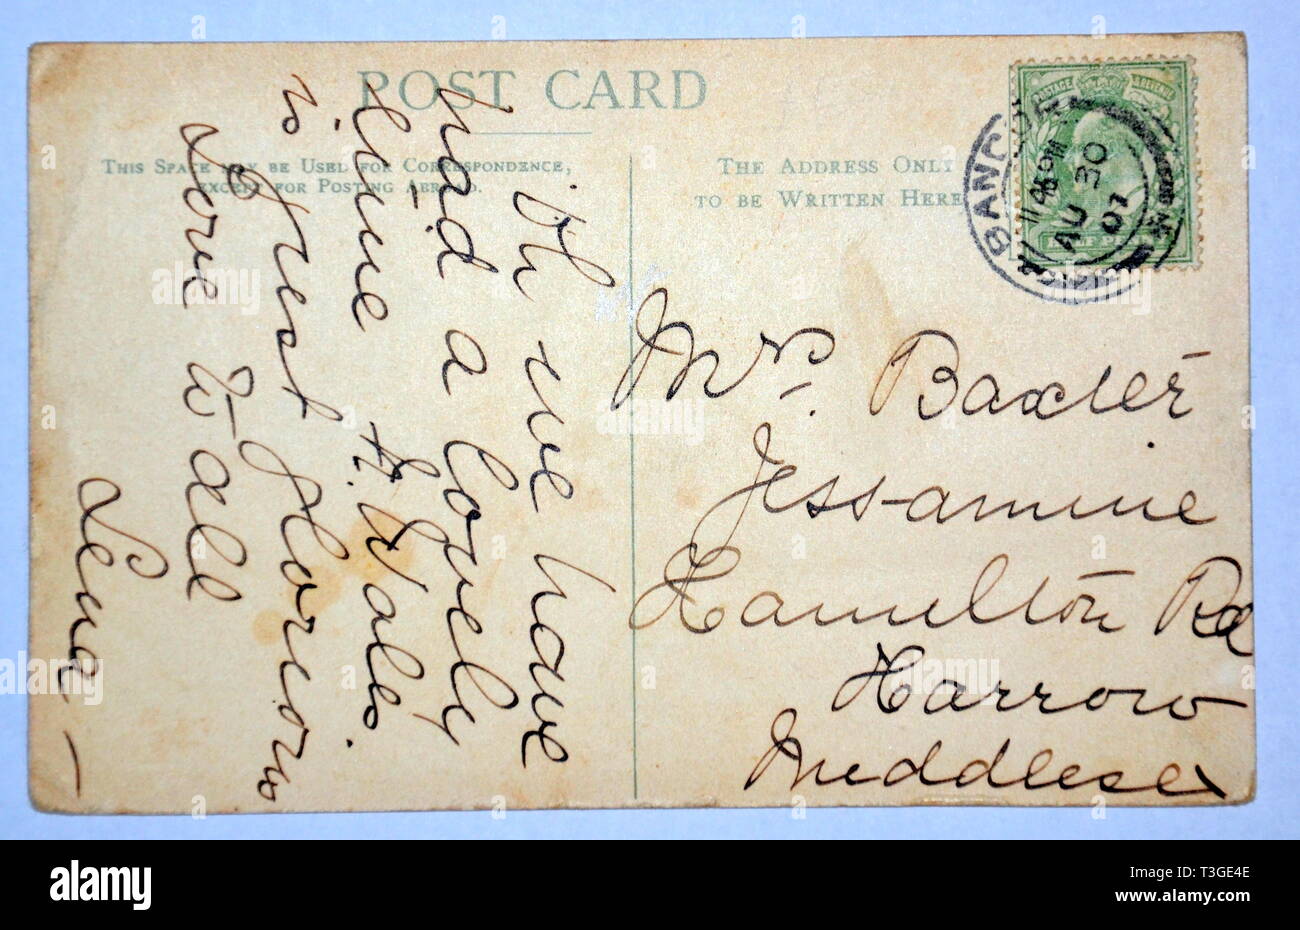 POST CARD
THIS SPACE MAY BE USED FOR CORRESPONDENCE,
EXCEPT FOR POSTING ABROAD.
THE ADDRESS ONLY
TO BE WRITTEN HERE
Oh we have
had a lovely
time N. Wales.
is just glorious
Love to all
Lena —
POSTAGE REVENUE
BANGOR
AU 30
07
Mrs. Baxter
Jessamine
Hamilton Rd
Harrow
Middlesex
alamy
Image ID: T3GE4E
www.alamy.com